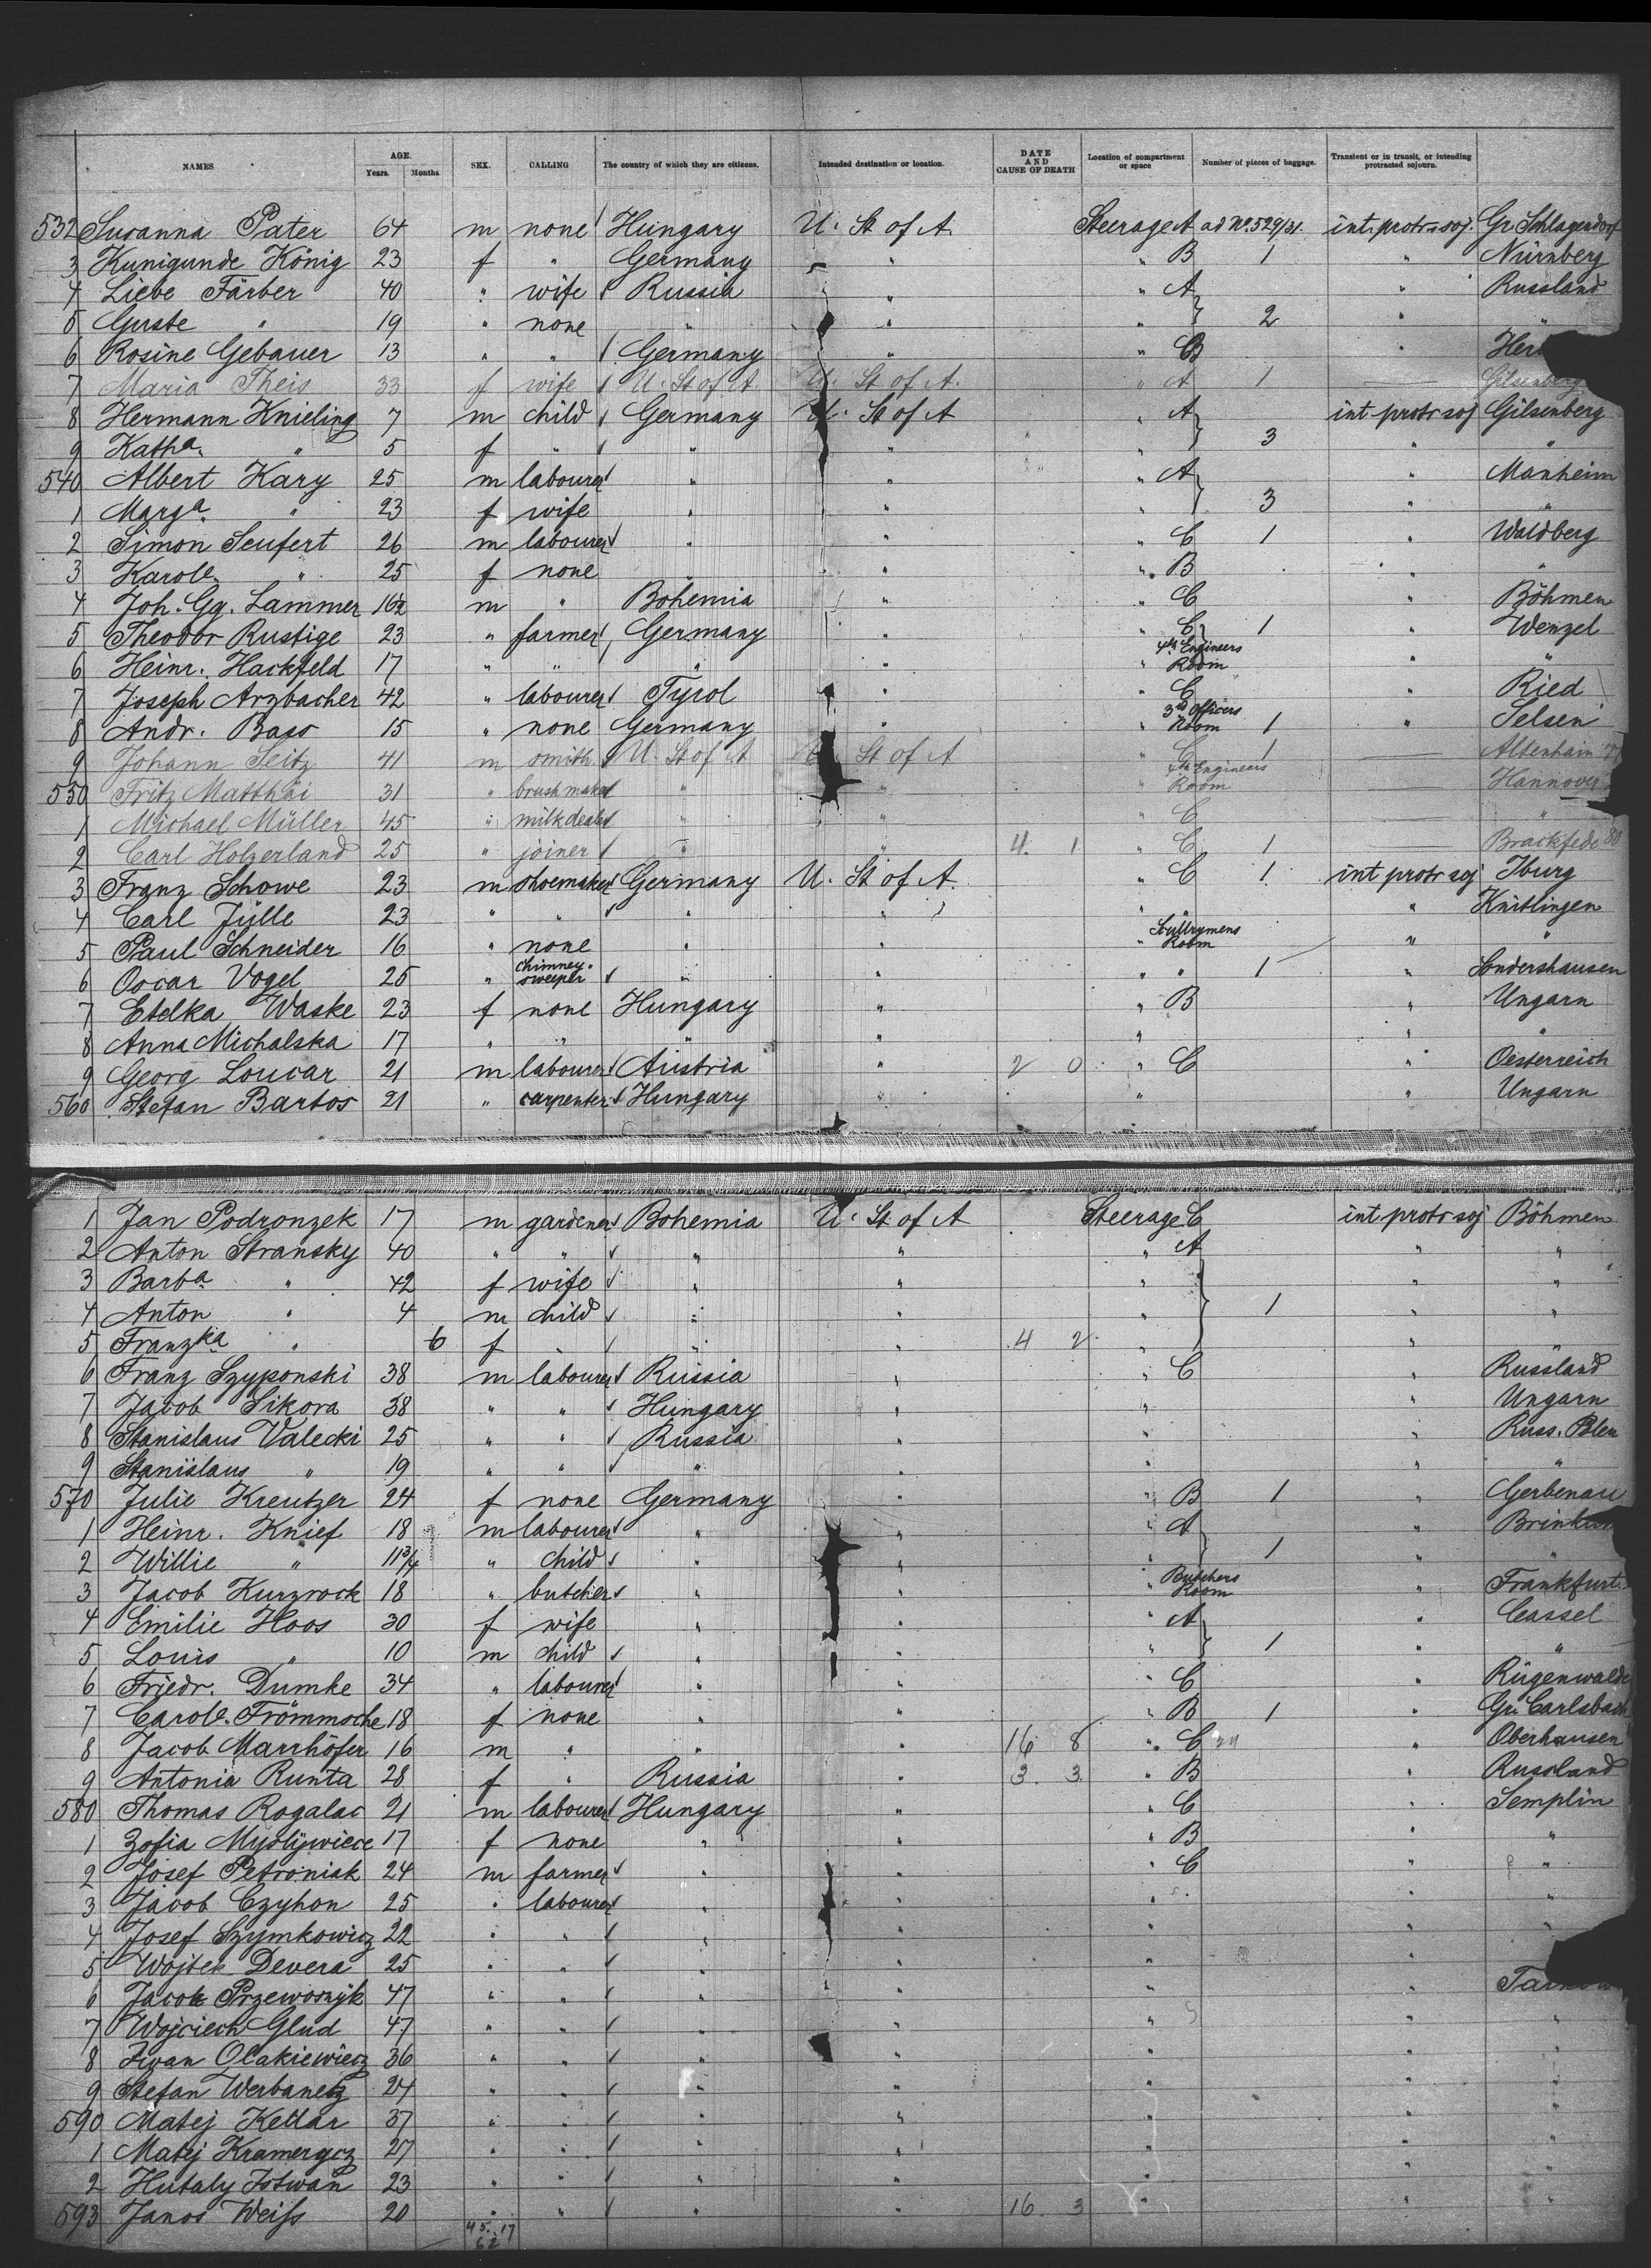 NAMES AGE. Years. Months. SEX. CALLING The country of which they are citizens. Intended destination or location. DATE AND CAUSE OF DEATH Location of compartment or space Number of pieces of baggage. Transient or in transit, or intending protracted sojourn.
532 Susanna Pater 64 m none Hungary U. St of A. Steerage A ad No. 529/31. int. protr. soj. Gr. Schlagendorf
3 Kunigunde König 23 f " Germany " " B 1 " Nürnberg
4 Liebe Färber 40 " wife Russia " " A " Russland
5 Guste " 19 " none " " " 2 " "
6 Rosine Gebauer 13 " " Germany " " B "
7 Maria Theis 33 f wife U. St of A. U. St of A. " A 1 — Gilsenberg
8 Hermann Knieling 7 m child Germany U. St of A " A int protr soj Gilsenberg
9 Katha. " 5 f " " " " 3 " "
540 Albert Kary 25 m labourer " " " A " Manheim
1 Marga. " 23 f wife " " " 3 " "
2 Simon Seufert 26 m labourer " " " C 1 " Waldberg
3 Karole. " 25 f none " " " B " "
4 Joh. Gg. Lammer 16½ m " Bohemia " " C " Böhmen
5 Theodor Rustige 23 " farmer Germany " " C 1 " Wenzel
6 Heinr. Hackfeld 17 " " " " " 4th Engineers Room " "
7 Joseph Arzbacher 42 " labourer Tyrol " " C " Ried
8 Andr. Bass 15 " none Germany " " 3rd Officers Room 1 " Selsen
9 Johann Seitz 41 m smith U. St of A U. St of A " C 1 — Altenhain
550 Fritz Matthäi 31 " brushmaker " " " 4th Engineers Room — Hannover
1 Michael Müller 45 " milkdealer " " " C — "
2 Carl Holzerland 25 " joiner " " 4. 1 " C 1 — Brackfede 80
3 Franz Schowe 23 m shoemaker Germany U. St of A. " C 1 int protr soj Iburg
4 Carl Jülle 23 " " " " " " " Knitlingen
5 Paul Schneider 16 " none " " " Room " "
6 Oscar Vogel 25 " chimney-sweeper " " " " 1 " Sondershausen
7 Etelka Waske 23 f none Hungary " " B " Ungarn
8 Anna Michalska 17 " " " " " " "
9 Georg Loucar 21 m labourer Austria " 2 0 " C " Oesterreich
560 Stefan Bartos 21 " carpenter Hungary " " " Ungarn
1 Jan Podronzek 17 m gardener Bohemia U. St of A Steerage C int protr soj Böhmen
2 Anton Stransky 40 " " " " " A " "
3 Barba. " 42 f wife " " " " "
4 Anton " 4 m child " " " 1 " "
5 Franzka " 6 f " " " 4 2 " " "
6 Franz Szyponski 38 m labourer Russia " " C " Russland
7 Jacob Sikora 38 " " Hungary " " " Ungarn
8 Stanislaus Valecki 25 " " Russia " " " Russ. Polen
9 Stanislaus " 19 " " " " " " "
570 Julie Kreutzer 24 f none Germany " " B 1 " Gerbenau
1 Heinr. Knief 18 m labourer " " " A "
2 Willie " 11¾ " child " " " 1 " "
3 Jacob Kurzrock 18 " butcher " " " Butchers Room " Frankfurt
4 Emilie Hoos 30 f wife " " " A " Cassel
5 Louis " 10 m child " " " 1 " "
6 Friedr. Dumke 34 " labourer " " " C " Rügenwalde
7 Carole. Frömmsche 18 f none " " " B 1 " Gr. Carlsbach
8 Jacob Marrhöfer 16 m " " " 16 8 " C " Oberhausen
9 Antonia Runta 28 f " Russia " 3. 3. " B " Russland
580 Thomas Rogalac 21 m labourer Hungary " " C " Semplin
1 Zofia Myslijwiece 17 f none " " " B " "
2 Josef Petroniak 24 m farmer " " " C " "
3 Jacob Czyhon 25 " labourer " " " " "
4 Josef Szymkowicz 22 " " " " " " "
5 Wojtek Devera 25 " " " " " "
6 Jacob Przewosnijk 47 " " " " " "
7 Wojciech Glud 47 " " " " " " "
8 Iwan Olakiewicz 36 " " " " " " "
9 Stefan Werbanetz 24 " " " " " " "
590 Matej Kellar 37 " " " " " " "
1 Matej Kramergcz 27 " " " " " " "
2 Hutaly Istwan 23 " " " " " " "
593 Janos Weifs 20 " " " " 16. 3 " " "
45. 17
62